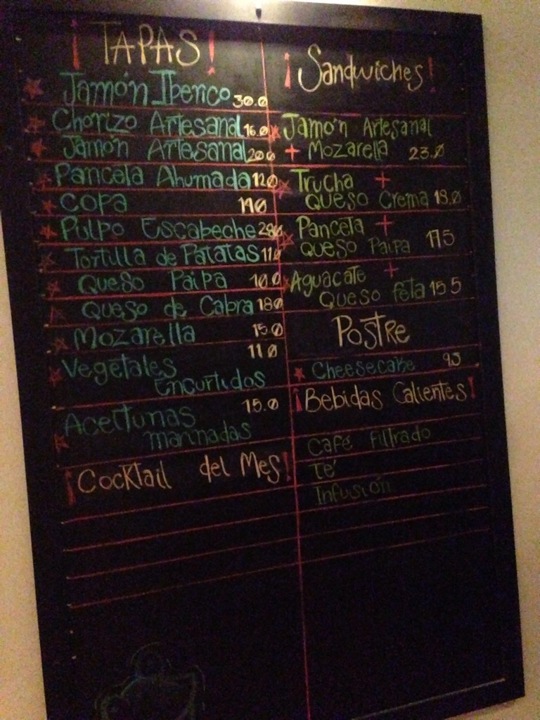 ¡TAPAS!
Jamón Iberico 30.0
Chorizo Artesanal 16.0
Jamón Artesanal 20.0
Panceta Ahumada 12.0
Copa 19.0
Pulpo Escabeche 28.0
Tortilla de Patatas 11.0
Queso Paipa 10.0
Queso de Cabra 18.0
Mozarella 15.0
Vegetales 11.0
Encurtidos
Aceitunas 15.0
marinadas
¡Cocktail del Mes!
¡Sandwiches!
Jamón Artesanal
+ Mozarella 23.0
Trucha +
Queso Crema 18.0
Panceta +
Queso Paipa 17.5
Aguacate +
Queso feta 15.5
Postre
Cheesecake 9.5
¡Bebidas Calientes!
Café filtrado
Té
Infusión